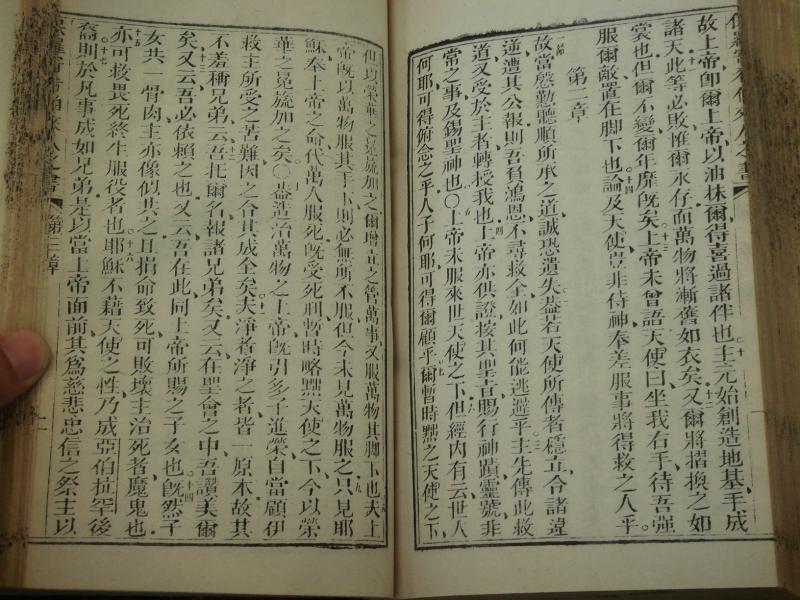 故上帝卽爾上帝以油抹爾得喜過諸伴也十主元始創造地基手成
諸天十一此等必敗惟爾永存而萬物將漸舊如衣矣十二又爾將摺換之如
裳也但爾不變爾年靡旣矣十三上帝未曾語天使曰坐我右手待吾强
服爾敵置在脚下也十四論及天使豈非侍神奉差服事將得救之人乎
第二章
一節故當慇勤聽順所承之道誠恐遺失二蓋若天使所傳者穩立合諸違
逆遭其公報三則吾負鴻恩不尋救全如此何能逃避乎主先傳此救
道又受於主者轉授我也四上帝亦供證按其聖旨賜行神蹟靈號非
常之事及錫聖神也○五上帝未服來世天使之下六但經內有云世人
何耶可得俯念之乎人子何耶可得爾顧乎七爾暫時黜之天使之下
但以榮華之冕旒加之爾增立之管萬事八又服萬物其脚下也夫上
帝旣以萬物服其手下則必無所不服但今未見萬物服之九只見耶
穌奉上帝之命代萬人服死旣受死刑暫時略黜天使之下今以榮
華之冕旒加之矣○十蓋造治萬物之上帝旣引多子進榮自當顧伊
救主所受之苦難因之合其成全矣十一夫淨者淨之者皆一原本故其
不羞稱兄弟十二云吾托爾名報諸兄弟矣又云在聖會之中吾讚美爾
矣十三又云吾必依賴之也又云吾在此同上帝所賜之子女也十四旣然子
女共一骨肉主亦像似共之且捐命致死可敗壞主治死者魔鬼也
十五亦可救畏死終生服役者也十六耶穌不藉天使之性乃藉亞伯拉罕後
裔十七則於凡事成如兄弟是以當上帝面前其爲慈悲忠信之祭主以